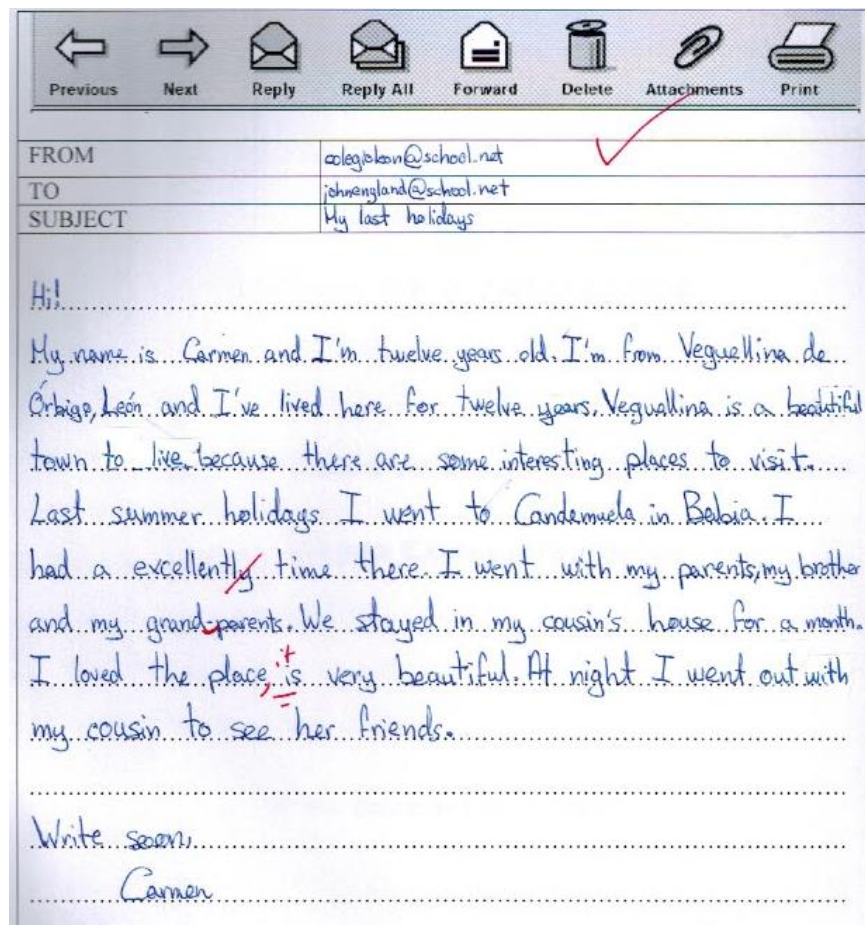 Previous Next Reply Reply All Forward Delete Attachments Print
FROM colegioleon@school.net
TO johnengland@school.net
SUBJECT My last holidays
Hi!
My name is Carmen and I'm twelve years old. I'm from Veguellina de
Órbigo, León and I've lived here for twelve years. Veguellina is a beautiful
town to live, because there are some interesting places to visit.
Last summer holidays I went to Candemuela in Babia. I
had a excellently time there. I went with my parents, my brother
and my grand-parents. We stayed in my cousin's house for a month.
it
I loved the place, is very beautiful. At night I went out with
my cousin to see her friends.
Write soon,
Carmen